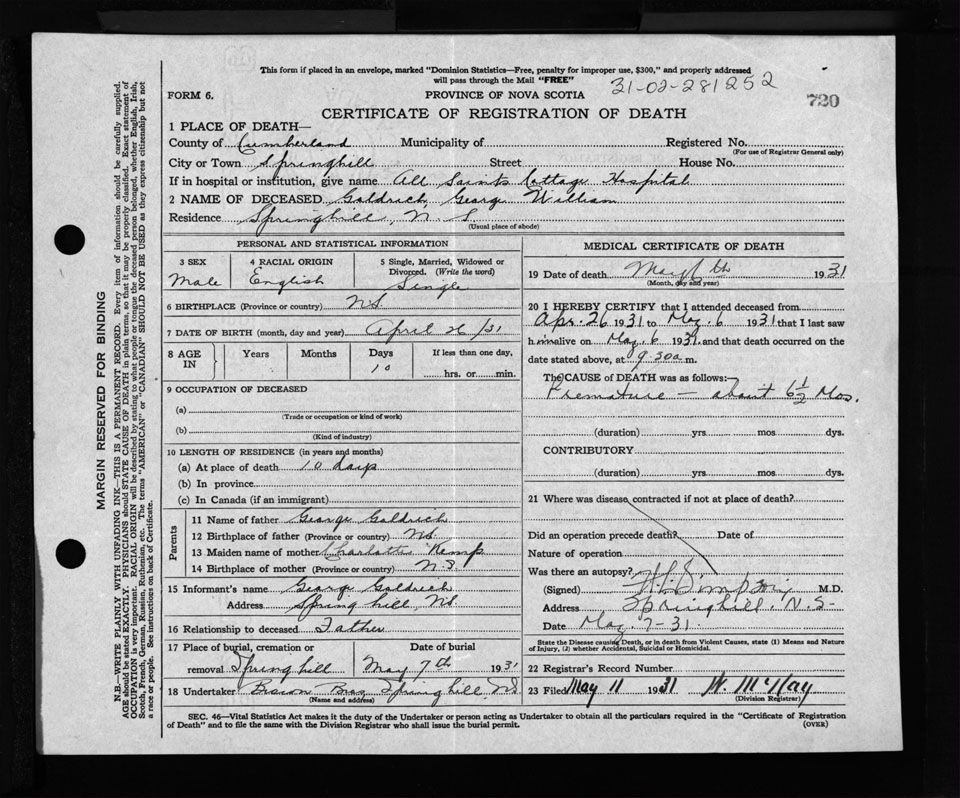 This form if placed in an envelope, marked "Dominion Statistics—Free, penalty for improper use, $300," and properly addressed
will pass through the Mail "FREE"
31-02-281252
720
FORM 6.
PROVINCE OF NOVA SCOTIA
CERTIFICATE OF REGISTRATION OF DEATH
1 PLACE OF DEATH—
County of Cumberland Municipality of Registered No.
(For use of Registrar General only)
City or Town Springhill Street House No.
If in hospital or institution, give name All Saints Cottage Hospital
2 NAME OF DECEASED Goldrich, George William
Residence Springhill, N.S.
(Usual place of abode)
PERSONAL AND STATISTICAL INFORMATION
3 SEX
Male
4 RACIAL ORIGIN
English
5 Single, Married, Widowed or
Divorced. (Write the word)
Single
6 BIRTHPLACE (Province or country) NS
7 DATE OF BIRTH (month, day and year) April 26/31
8 AGE IN Years Months Days If less than one day,
10 hrs. or min.
9 OCCUPATION OF DECEASED
(a)
(Trade or occupation or kind of work)
(b)
(Kind of industry)
10 LENGTH OF RESIDENCE (in years and months)
(a) At place of death 10 days
(b) In province
(c) In Canada (if an immigrant)
Parents
11 Name of father George Goldrich
12 Birthplace of father (Province or country) NS.
13 Maiden name of mother Charlotte Kemp
14 Birthplace of mother (Province or country) N.S.
15 Informant's name George Goldrich
Address Springhill, NS.
16 Relationship to deceased Father
17 Place of burial, cremation or Date of burial
removal Springhill May 7th 1931
18 Undertaker Bros Springhill NS
(Name and address)
MEDICAL CERTIFICATE OF DEATH
19 Date of death May 6th 1931
(Month, day and year)
20 I HEREBY CERTIFY that I attended deceased from
Apr. 26 1931 to May. 6 1931 that I last saw
h im alive on May. 6 1931 and that death occurred on the
date stated above, at 9.30 a m.
The CAUSE of DEATH was as follows:
Premature — about 6½ Mos.
(duration) yrs mos dys.
CONTRIBUTORY
(duration) yrs. mos. dys.
21 Where was disease contracted if not at place of death?
Did an operation precede death? Date of
Nature of operation
Was there an autopsy?
(Signed) M.D.
Address Springhill, N.S-
Date May 7-31
State the Disease causing Death, or in death from Violent Causes, state (1) Means and Nature
of Injury, (2) whether Accidental, Suicidal or Homicidal.
22 Registrar's Record Number
23 Filed May 11 1931 W. McKay
(Division Registrar)
SEC. 46—Vital Statistics Act makes it the duty of the Undertaker or person acting as Undertaker to obtain all the particulars required in the "Certificate of Registration
of Death" and to file the same with the Division Registrar who shall issue the burial permit.
(OVER)
MARGIN RESERVED FOR BINDING
N.B.—WRITE PLAINLY WITH UNFADING INK—THIS IS A PERMANENT RECORD. Every item of information should be carefully supplied.
AGE should be stated EXACTLY. PHYSICIANS should STATE CAUSE OF DEATH in plain terms, so that it may be properly classified. Exact statement of
OCCUPATION is very important. RACIAL ORIGIN will be described by stating to what people or tongue the deceased person belonged, whether English, Irish,
Scotch, French, German, Russian, Ruthenian, etc. The terms "AMERICAN" or "CANADIAN" SHOULD NOT BE USED as they express citizenship but not
a race or people. See instructions on back of Certificate.